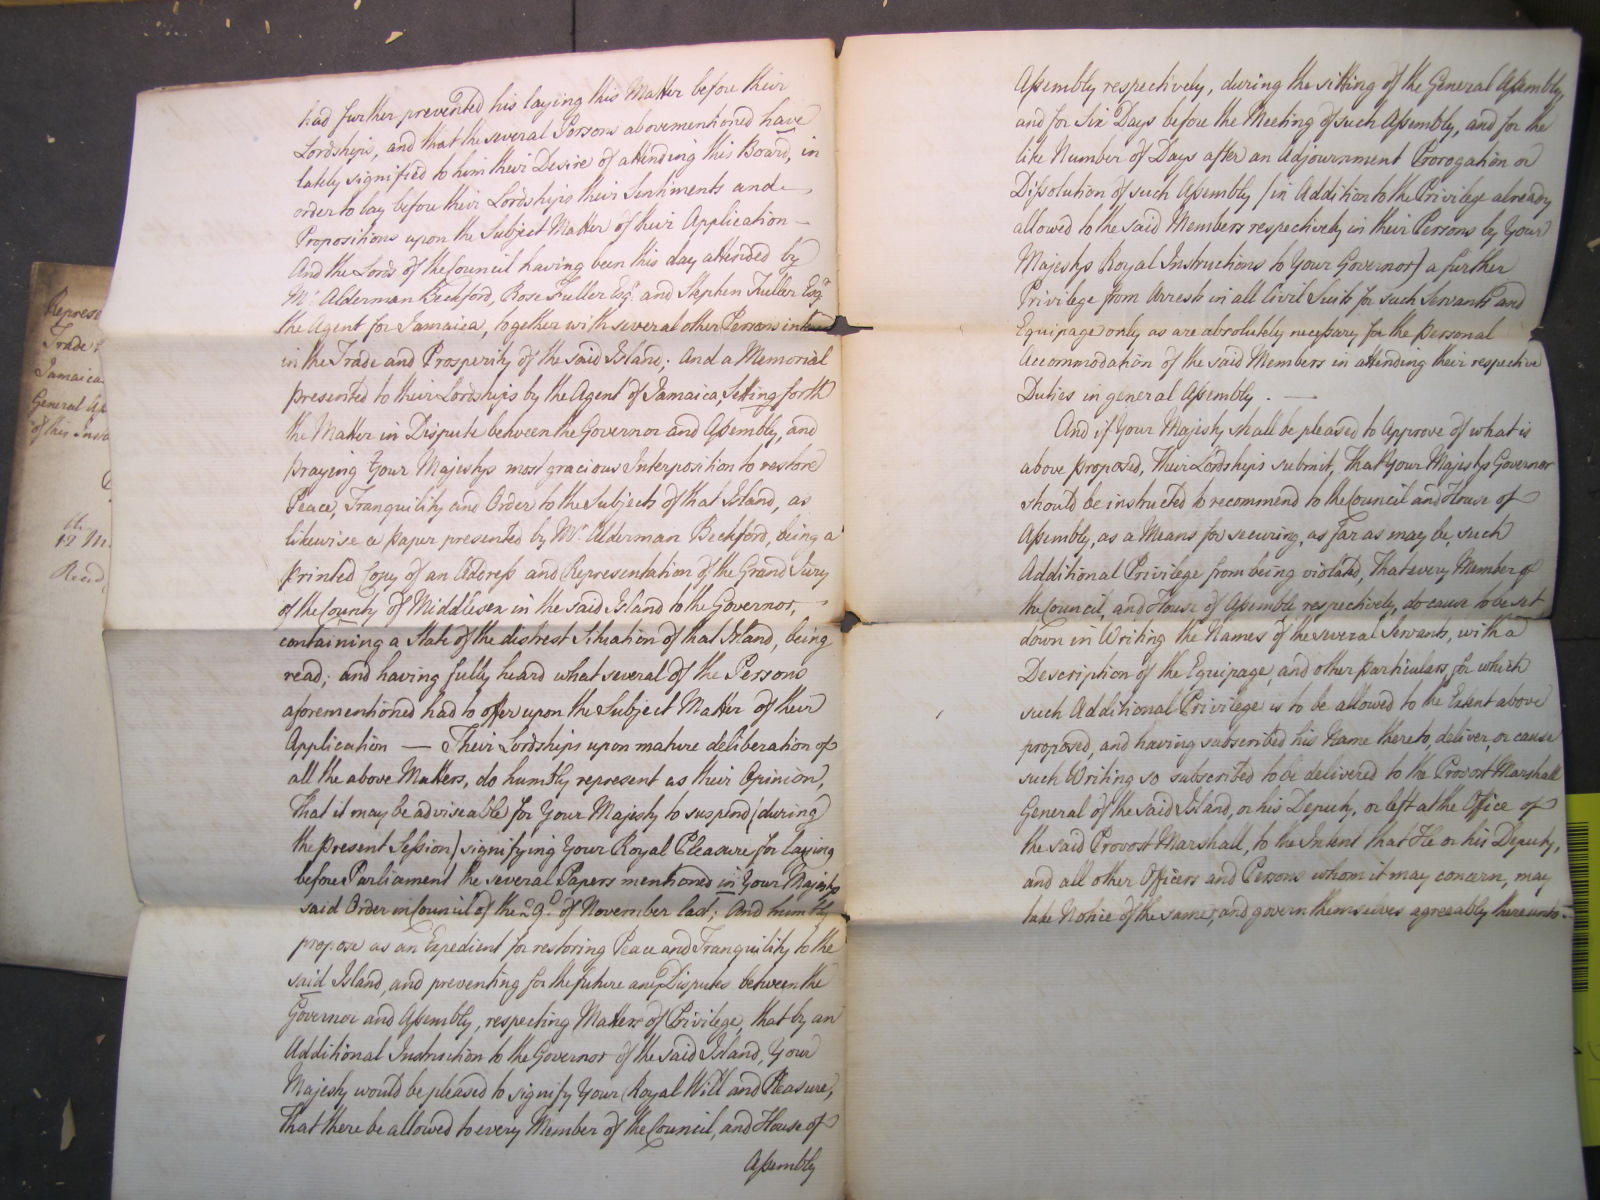 Represe
Trade
Jamaica
General As
of this Insta
12 M
Read
had further prevented his laying this Matter before their
Lordships, and that the several Persons abovementioned have
lately signified to him their Desire of attending this Board, in
order to lay before their Lordships their Sentiments and
Propositions upon the Subject Matter of their Application —
And the Lords of the Council having been this day attended by
Mr. Alderman Beckford, Rose Fuller Esqr. and Stephen Fuller Esqr.
the Agent for Jamaica, together with several other Persons
in the Trade and Prosperity of the said Island; And a Memorial
presented to their Lordships by the Agent of Jamaica, Setting forth
the Matter in Dispute between the Governor and Assembly, and
praying Your Majestys most gracious Interposition to restore
Peace, Tranquility and Order to the Subjects of that Island, as
likewise a paper presented by Mr. Alderman Beckford, being a
printed Copy of an Address and Representation of the Grand Jury
of the County of Middlesex in the said Island to the Governor,
containing a State of the distrest Situation of that Island, being
read; and having fully heard what several of the Persons
aforementioned had to offer upon the Subject Matter of their
Application — Their Lordships upon mature deliberation of
all the above Matters, do humbly represent as their Opinion,
That it may be adviseable for Your Majesty to suspend (during
the present Session) signifying Your Royal Pleasure for laying
before Parliament the several Papers mentioned in Your Majestys
said Order in Council of the 29th. of November last; And humbly
propose as an Expedient for restoring Peace and Tranquility to the
said Island, and preventing for the future any Disputes between the
Governor and Assembly, respecting Matters of Privilege, that by an
Additional Instruction to the Governor of the said Island, Your
Majesty would be pleased to signify Your Royal Will and Pleasure,
That there be allowed to every Member of the Council, and House of
Assembly
Assembly respectively, during the sitting of the General Assembly,
and for Six Days before the Meeting of such Assembly, and for the
like Number of Days after an Adjournment Prorogation or
Dissolution of such Assembly (in Addition to the Privilege already
allowed to the said Members respectively in their Persons by Your
Majestys Royal Instructions to Your Governor) a further
Privilege from Arrests in all Civil Suits for such Servants and
Equipage only as are absolutely necessary for the personal
Accommodation of the said Members in attending their respective
Duties in general Assembly. —
And if Your Majesty shall be pleased to Approve of what is
above proposed, Their Lordships submit, That Your Majestys Governor
should be instructed to recommend to the Council and House of
Assembly, as a Means for securing, as far as may be, such
Additional Privilege from being violated, That every Member of
the Council, and House of Assembly respectively, do cause to be set
down in Writing the Names of the several Servants, with a
Description of the Equipage, and other particulars, for which
such Additional Privilege is to be allowed to the Extent above
proposed, and having subscribed his Name thereto, deliver, or cause
such Writing so subscribed to be delivered to the Provost Marshall
General of the said Island, or his Deputy, or left at the Office of
the said Provost Marshall, to the Intent that He or his Deputy,
and all other Officers and Persons whom it may concern, may
take Notice of the same, and govern themselves agreeably thereunto —